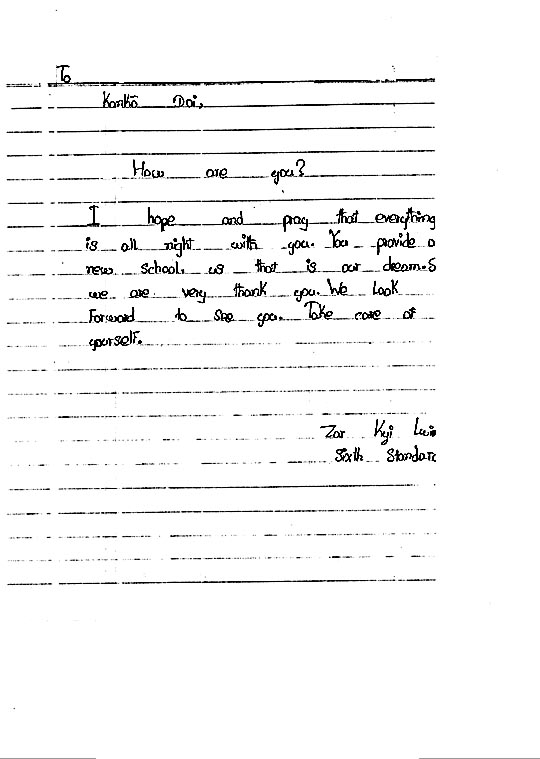 To
Kanko Doi,
How are you?
I hope and pray that everything
is all right with you. You provide a
new school. us that is our dream.S
we are very thank you. We Look
Forward to See you. Take care of
yourself.
Zar Kyi Lwi
Sixth Standar